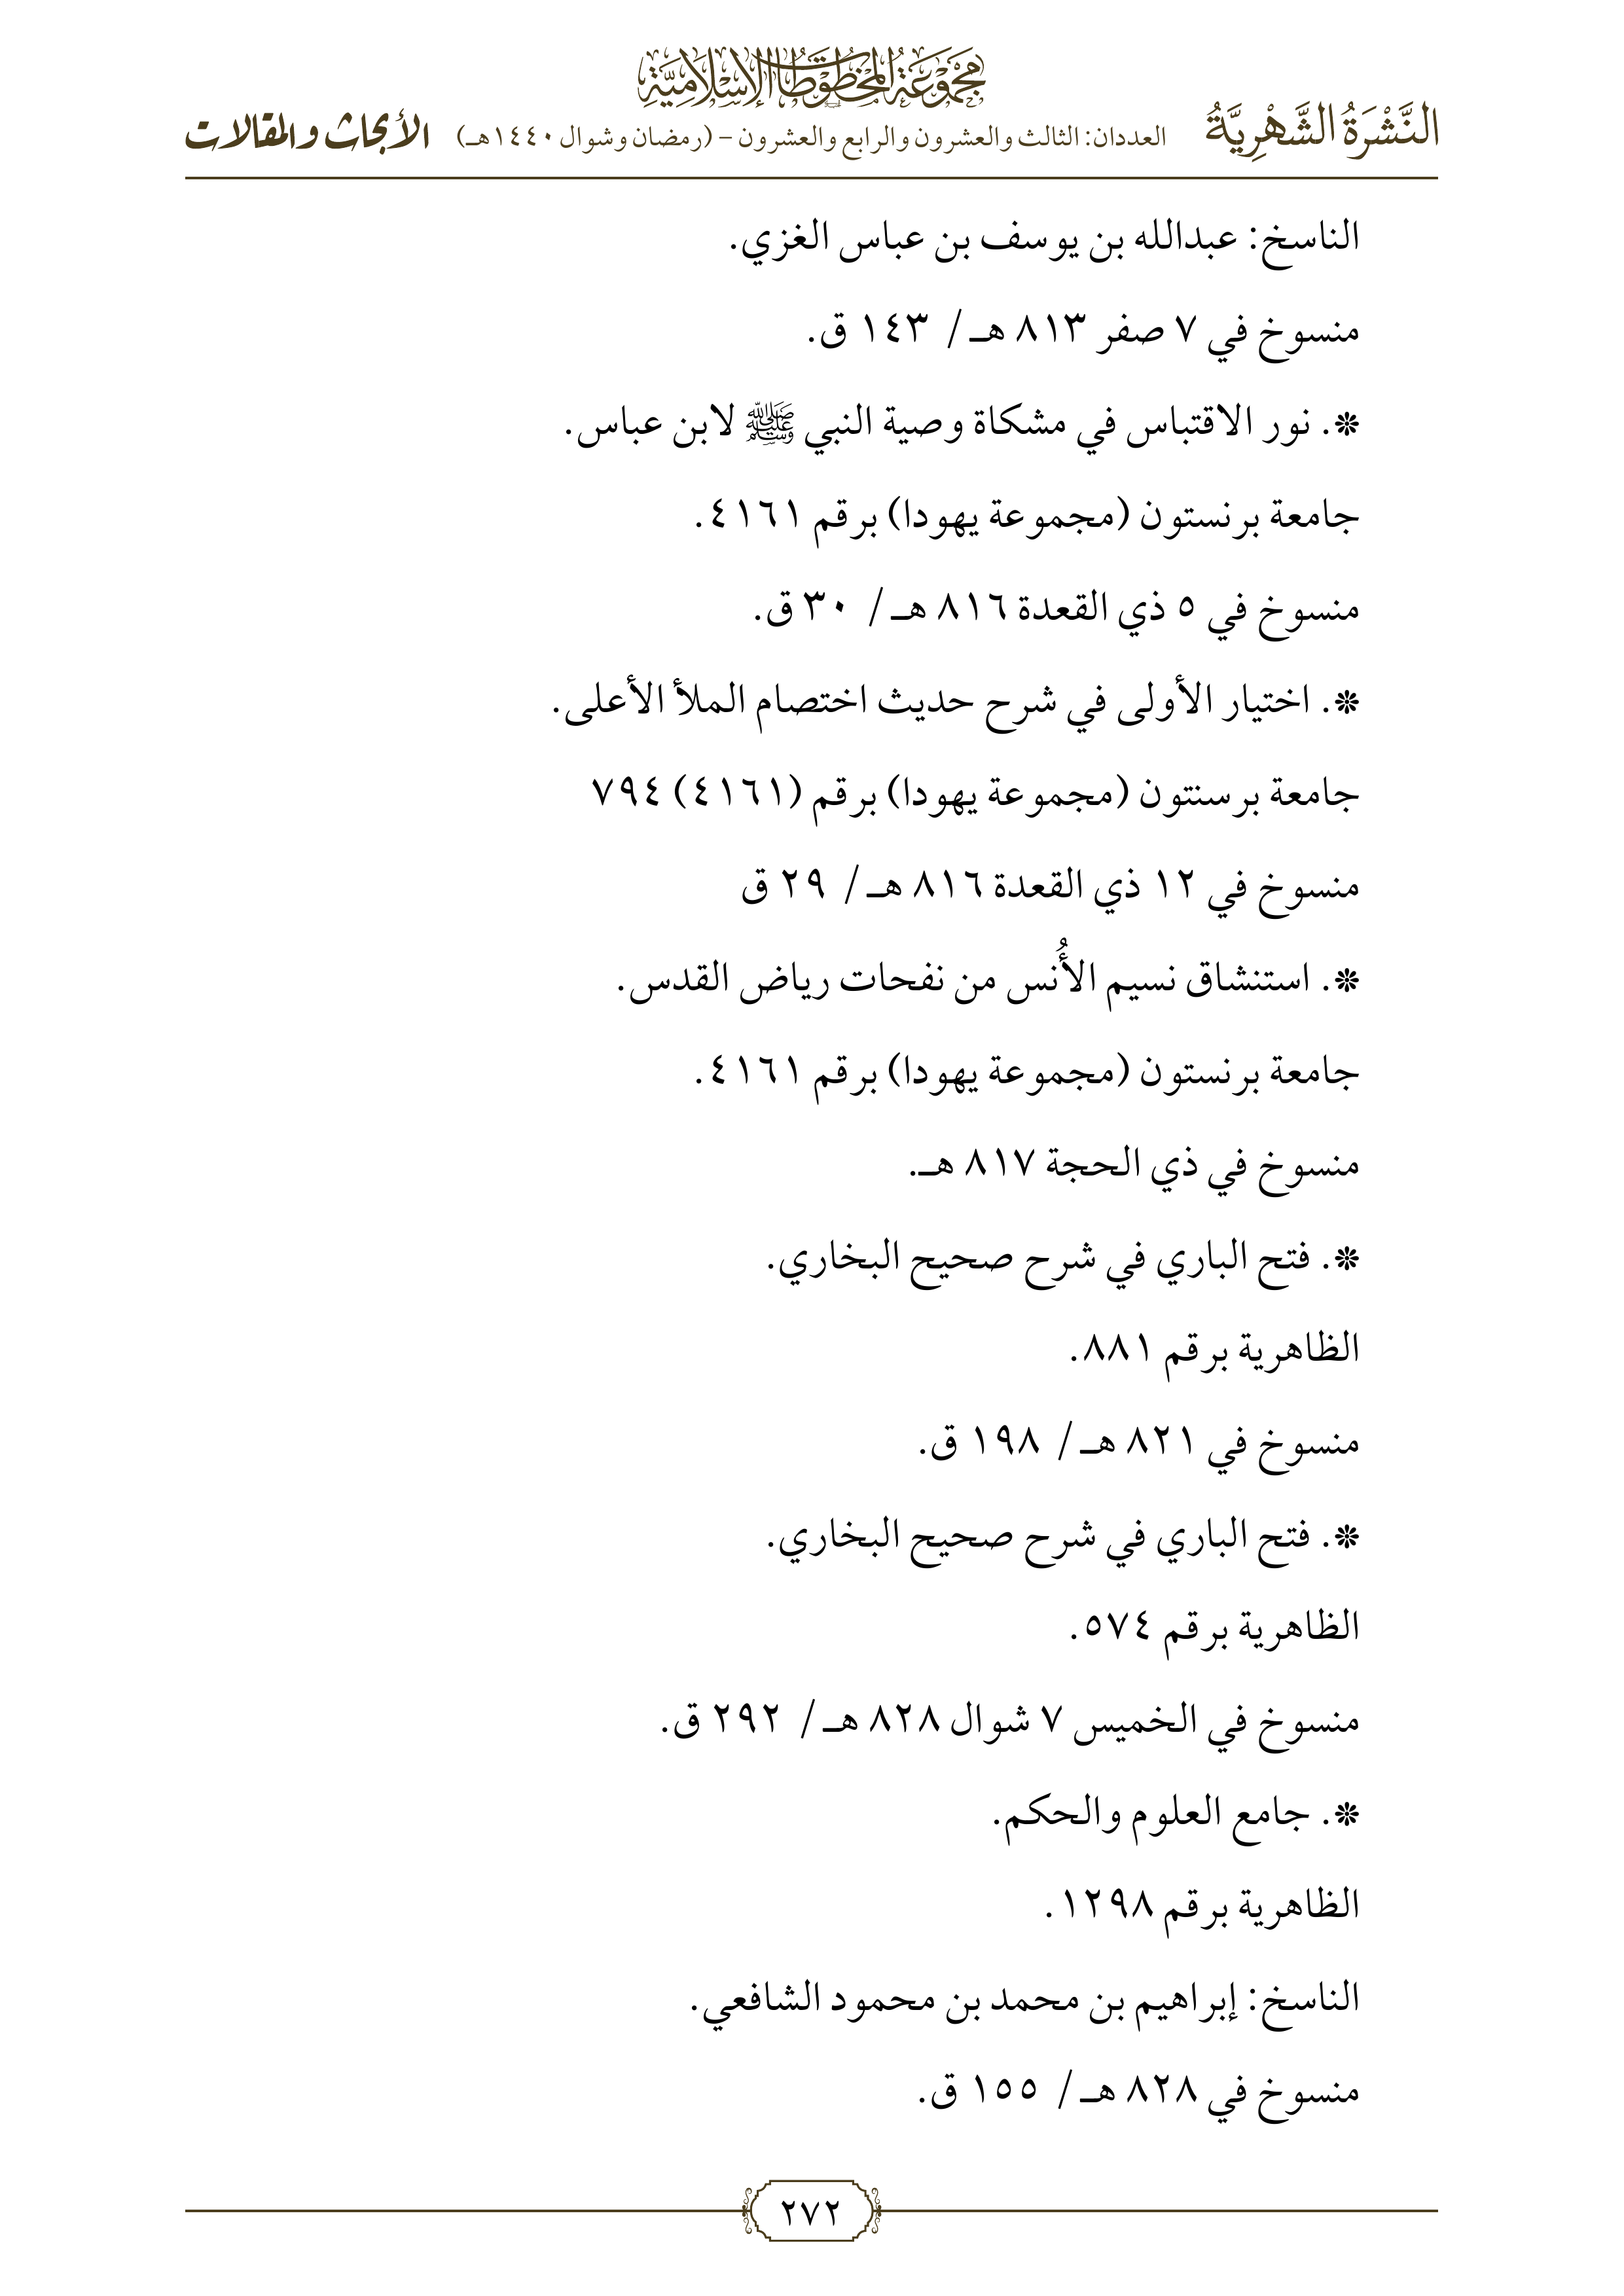 مجموعة المخطوطات الإسلامية
النَّشْرَةُ الشَّهْرِيَّةُ العددان: الثالث والعشرون والرابع والعشرون – (رمضان وشوال ١٤٤٠هـ) الأبحاث والمقالات
الناسخ: عبدالله بن يوسف بن عباس الغزي.
منسوخ في ٧ صفر ٨١٣ هـ/ ١٤٣ ق.
❊. نور الاقتباس في مشكاة وصية النبي ﷺ لابن عباس.
جامعة برنستون (مجموعة يهودا) برقم ٤١٦١.
منسوخ في ٥ ذي القعدة ٨١٦ هـ/ ٣٠ ق.
❊. اختيار الأولى في شرح حديث اختصام الملأ الأعلى.
جامعة برسنتون (مجموعة يهودا) برقم (٤١٦١) ٧٩٤
منسوخ في ١٢ ذي القعدة ٨١٦ هـ/ ٢٩ ق
❊. استنشاق نسيم الأُنس من نفحات رياض القدس.
جامعة برنستون (مجموعة يهودا) برقم ٤١٦١.
منسوخ في ذي الحجة ٨١٧ هـ.
❊. فتح الباري في شرح صحيح البخاري.
الظاهرية برقم ٨٨١.
منسوخ في ٨٢١ هـ/ ١٩٨ ق.
❊. فتح الباري في شرح صحيح البخاري.
الظاهرية برقم ٥٧٤.
منسوخ في الخميس ٧ شوال ٨٢٨ هـ/ ٢٩٢ ق.
❊. جامع العلوم والحكم.
الظاهرية برقم ١٢٩٨.
الناسخ: إبراهيم بن محمد بن محمود الشافعي.
منسوخ في ٨٢٨ هـ/ ١٥٥ ق.
٢٧٢